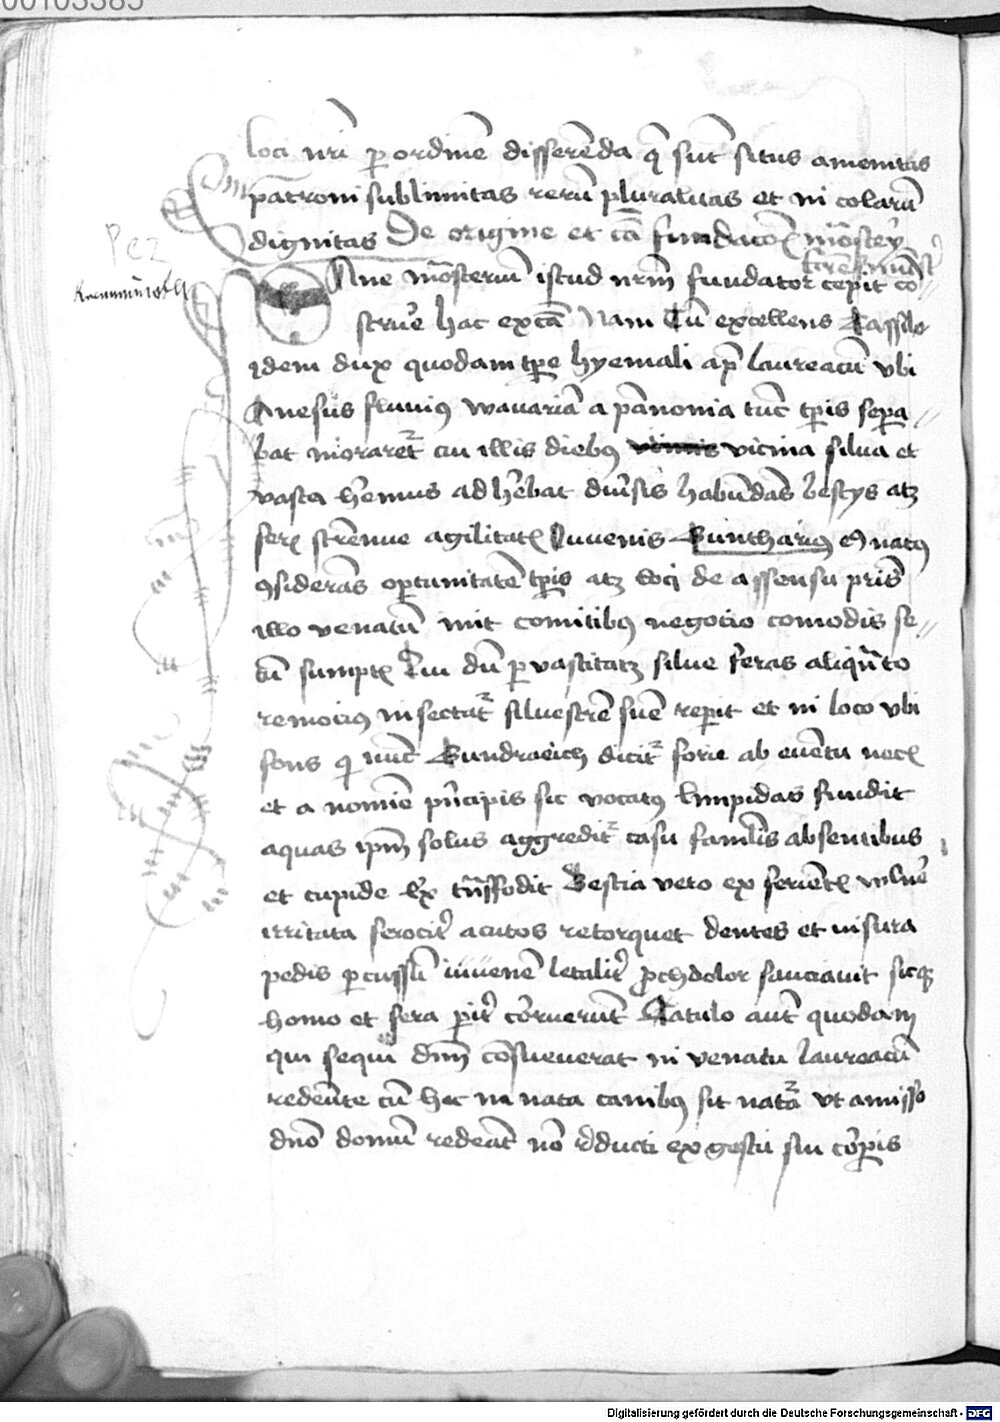 00103385
loci nr̄i ꝑ ordinē disserēda q̄ sūt situs amenitas
pat̄roni sublimitas rerū pluralitas et in colarū
dignitas De origine et cā fundacōꝫ mōstery
Pez
Ane mōsteriū istud nrm̄ fundator cepit co〃
strue᷑ hac ex cā Nam Cū excellens Tassilo
idem dux quodam tꝑe hyemali apᷓ laureacū vbi
Anesūs fluviꝰ wavariā a pānonia tūc tꝑis seꝑa〃
bat moraret᷑ cui illis diebꝰ vicina silua et
vasta he᷑mus adhe᷑bat diu᷑sis habūdās bestys atꝫ
feris stre᷑nue agilitatis Juvenis Gunthariꝰ eꝰ natꝰ
ꝯsiderās oportunitatē tꝑis atꝫ loci de assensu pr̄is
illo venatū init comitibꝰ negotio comodis se〃
cū sumptis Qui dū ꝑ vastitatꝫ silue feras aliqn̄to
remociꝰ insectat᷑ siluestrē suē repperit et in loco vbi
fons qi nūc Gundraeich dicit᷑ forte ab euētu necis
et a nomīe pn̄cipis sic vocatꝰ limpidas fundit
aquas ipm̄ solus aggredit᷑ casu famlīs absentibus
et cupide ... tn̄sfodit Bestia vero ex feriētis vulne᷑
irritata ferocit᷑ acutos retorquet dentes et in sura
pedis ꝑcussū iuuenē letalit᷑ proch dolor sauciauit sicqꝫ
homo et fera ꝑit᷑ cor᷑ruerūt Catulo aūt quodam
qui sequi dnm̄ cōsueuerat in venatu laureacū
redeūte cū hec in nata canibꝰ sit nat᷑a vt amisso
dnō domū redeāt nō rᷓducti ex gestu sui cor᷑ꝑis
Digitalisierung gefördert durch die Deutsche Forschungsgemeinschaft - DFG